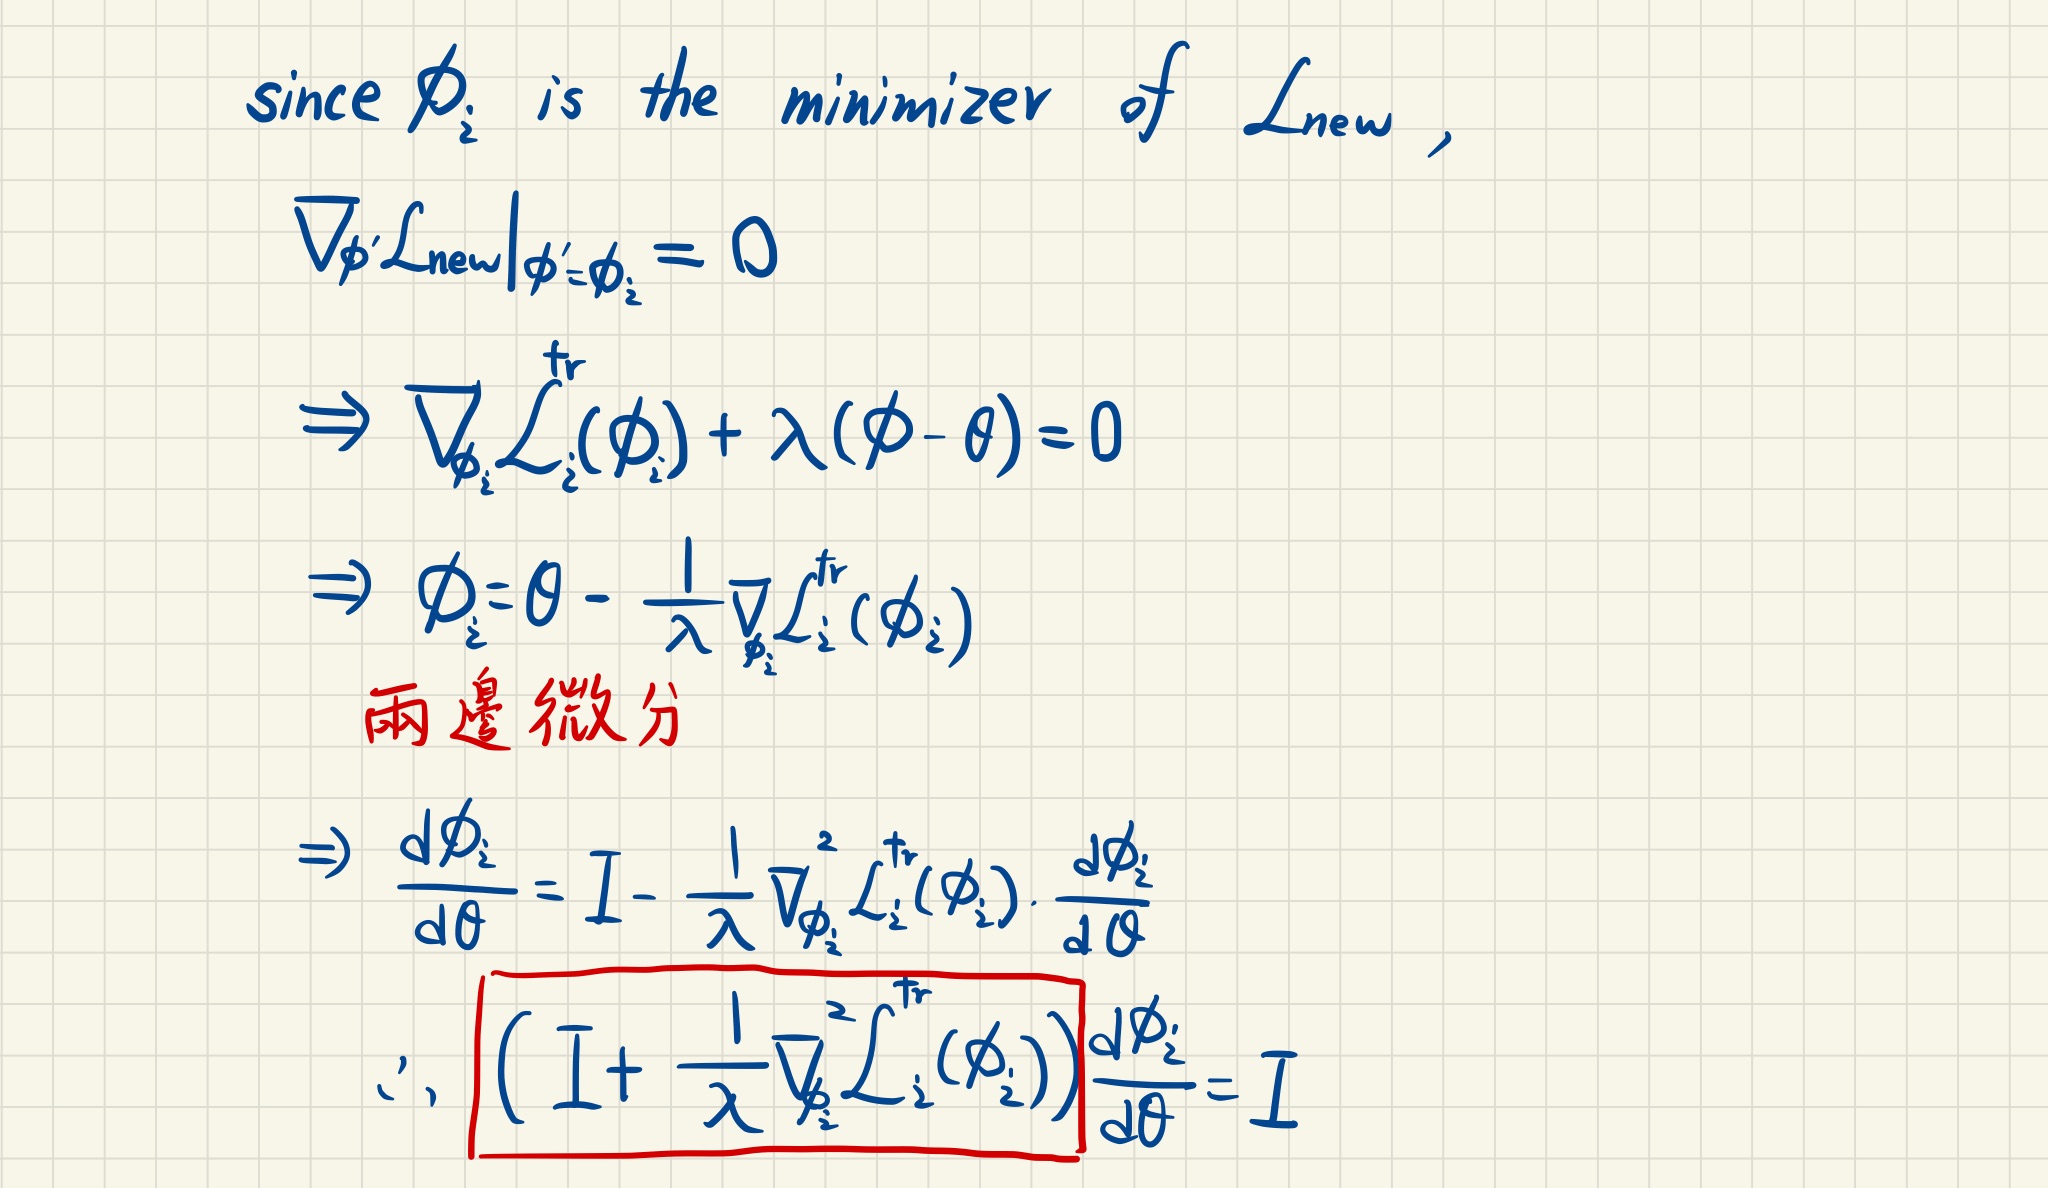 since ϕᵢ is the minimizer of ℒnew ,
∇ϕ′ ℒnew |ϕ′=ϕᵢ = 0
⇒ ∇ϕᵢ ℒᵢᵗʳ(ϕᵢ) + λ(ϕ - θ) = 0
⇒ ϕᵢ = θ - 1/λ ∇ϕᵢ ℒᵢᵗʳ(ϕᵢ)
兩邊微分
⇒ dϕᵢ/dθ = I - 1/λ ∇²ϕᵢ ℒᵢᵗʳ(ϕᵢ) · dϕᵢ/dθ
∴ (I + 1/λ ∇²ϕᵢ ℒᵢᵗʳ(ϕᵢ)) dϕᵢ/dθ = I